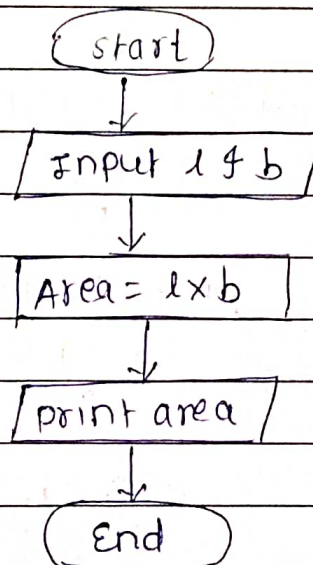 start
Input l & b
Area = l x b
print area
End